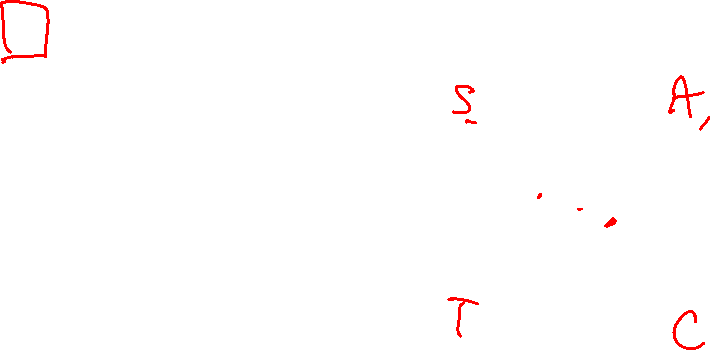 S A,
...
T C